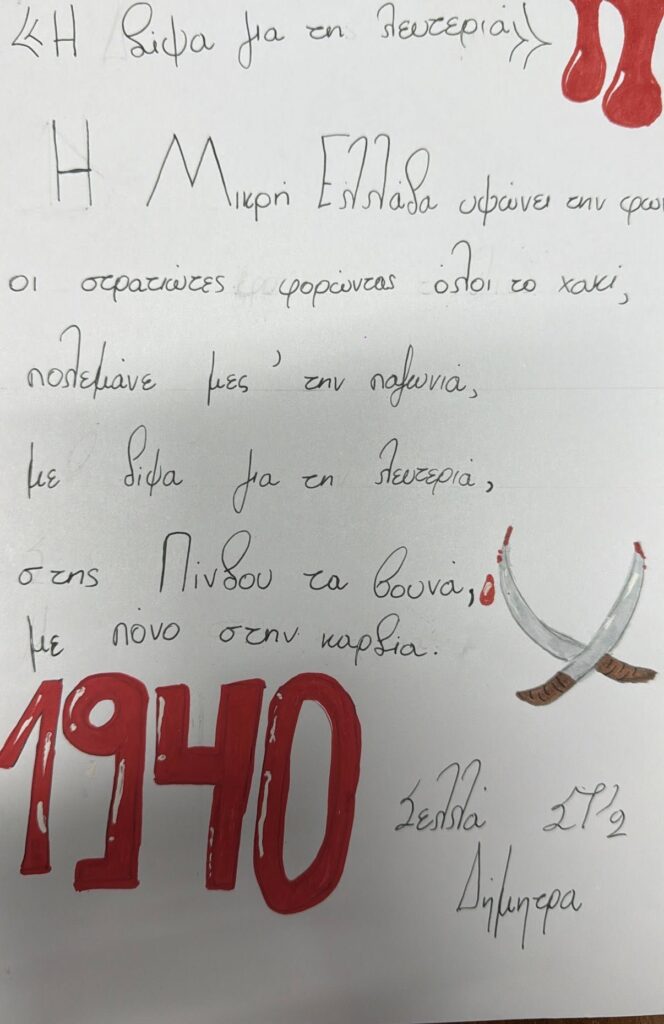 «Η δίψα για τη λευτεριά»
Η Μικρή Ελλάδα υψώνει την φων
οι στρατιώτες φορώντας όλοι το χακί,
πολεμάνε μες' την παγωνιά,
με δίψα για τη λευτεριά,
στης Πίνδου τα βουνά,
με πόνο στην καρδία.
1940
Σελλά ΣΤ'2
Δήμητρα